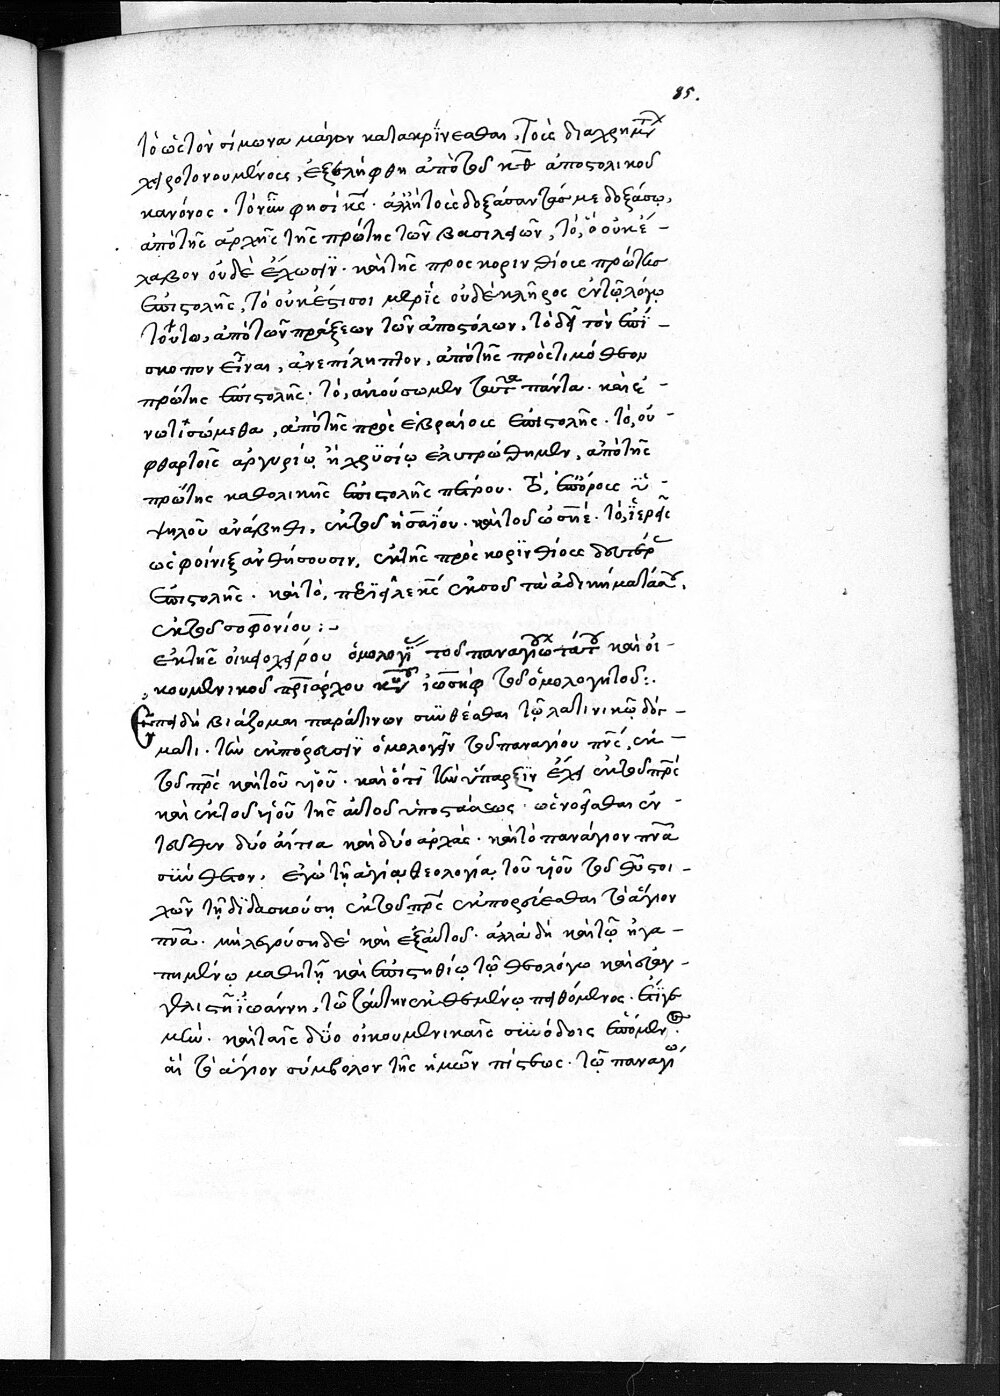 85.
τὸ ὡς τὸν σίμωνα μάγον κατακρίνεσθαι, τοὺς διὰ χρημάτων
χειροτονουμένους, ἐξελήφθη ἀπὸ τοῦ κθ ἀποστολικοῦ
κανόνος. τὸ φησὶ κς. ἀλλ' ἢ τοὺς δοξάσαντάς με δοξάσω,
ἀπὸ τῆς ἀρχῆς τῆς πρώτης τῶν βασιλειῶν, τὸ, ὃ οὐκ ἔ-
λαβον οὐδὲ ἔχωσιν. καὶ τῆς προς κορινθίους πρώτης
ἐπιστολῆς, τὸ οὐκ ἔστι σοι μερὶς οὐδὲ κλῆρος ἐν τῷ λόγῳ
τούτῳ, ἀπὸ τῶν πράξεων τῶν ἀποστόλων, τὸ δεῖ τὸν ἐπί-
σκοπον εἶναι, ἀνεπίληπτον, ἀπὸ τῆς πρὸς τιμόθεον
πρώτης ἐπιστολῆς. τὸ, ἀκούσωμεν ταῦτα πάντα. καὶ ἐ-
νωτισώμεθα, ἀπὸ τῆς πρὸς ἑβραίους ἐπιστολῆς. τὸ, οὐ
φθαρτοῖς ἀργυρίῳ ἢ χρυσίῳ ἐλυτρώθημεν, ἀπὸ τῆς
πρώτης καθολικῆς ἐπιστολῆς πέτρου. τὸ, ἐπ' ὄρους ὑ-
ψηλοῦ ἀνάβηθι, ἐκ τοῦ ἡσαΐου. καὶ τοῦ ὡσηέ. τὸ, ἱερεῖς
ὡς φοίνιξ ἀνθήσουσιν, ἐκ τῆς πρὸς κορινθίους δευτέρας
ἐπιστολῆς. καὶ τὸ, περιεῖλε κς ἐκ σοῦ τὰ ἀδικήματά σου.
ἐκ τοῦ σοφονίου :~
ἐκ τῆς οἰκειοχείρου ὁμολογίας τοῦ παναγιωτάτου καὶ οἰ-
κουμενικοῦ πριάρχου κυροῦ ἰωσὴφ τοῦ ὁμολογητοῦ :.
Ἐπειδὴ βιάζομαι παρά τινων συνθέσθαι τῷ λατινικῷ δόγ-
ματι. τὴν ἐκπόρευσιν ὁμολογεῖν τοῦ παναγίου πνς, ἐκ
τοῦ πρς καὶ τοῦ υἱοῦ. καὶ ὅτι τὴν ὕπαρξιν ἔχει ἐκ τοῦ πρς
καὶ ἐκ τοῦ υἱοῦ τῆς αὐτοῦ ὑποστάσεως. ὡς νοεῖσθαι ἐν-
τεῦθεν δύο αἴτια καὶ δύο ἀρχάς. καὶ τὸ παναγιον πνα
σύνθετον. ἐγὼ τῇ ἁγίᾳ θεολογίᾳ τοῦ υἱοῦ τοῦ θυ στοι-
χῶν τῇ διδασκούσῃ ἐκ τοῦ πρς ἐκπορεύεσθαι τὸ ἅγιον
πνα. μὴ λεγούσῃ δὲ καὶ ἐξ αὐτοῦ. ἀλλὰ δὴ καὶ τῷ ἠγα-
πημένῳ μαθητῇ καὶ ἐπιστηθίῳ τῷ θεολόγῳ καὶ εὐαγ-
γελιστῇ ἰωάννῃ, τῷ ταύτην ἐκθεμένῳ πειθόμενος. ἔτι γε
μὴν. καὶ ταῖς δύο οἰκουμενικαῖς συνόδοις ἑπόμενος.
αἳ τὸ ἅγιον σύμβολον τῆς ἡμῶν πίστεως. τῷ παναγίῳ